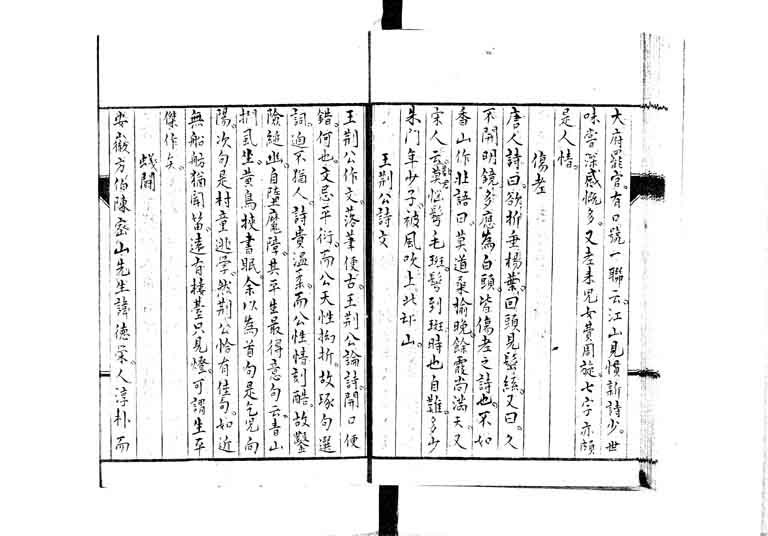 大府罷官有口號一聯云江山見慣新詩少世
味嘗深感慨多又老来児女費周旋七字亦頗
是人情
傷老
唐人詩曰欲折垂楊葉回頭見鬢絲又曰久
不開明鏡多應為白頭皆傷老之詩也不如
香山作壯語曰莫道桑榆晚餘霞尚滿天又
宋人云勸君莫惱鬢毛斑鬢到斑時也自難多少
朱门年少子被風吹上北邙山
王荆公詩文
王荆公作文落筆便古王荆公論詩開口便
錯何也文忌平衍而公天性拗折故琢句選
詞迥不猶人詩貴温柔而公性情刻酷故鑿
險縋幽自墮魔障其平生最得意句云青山
捫虱坐黄鳥挾書眠余以為首句是乞児向
陽次句是村童逃學然荆公恰有佳句如近
無船舫猶聞笛遠有樓臺只見燈可謂生平
傑作矣
安徽方伯陳密山先生諱德榮人淳朴而